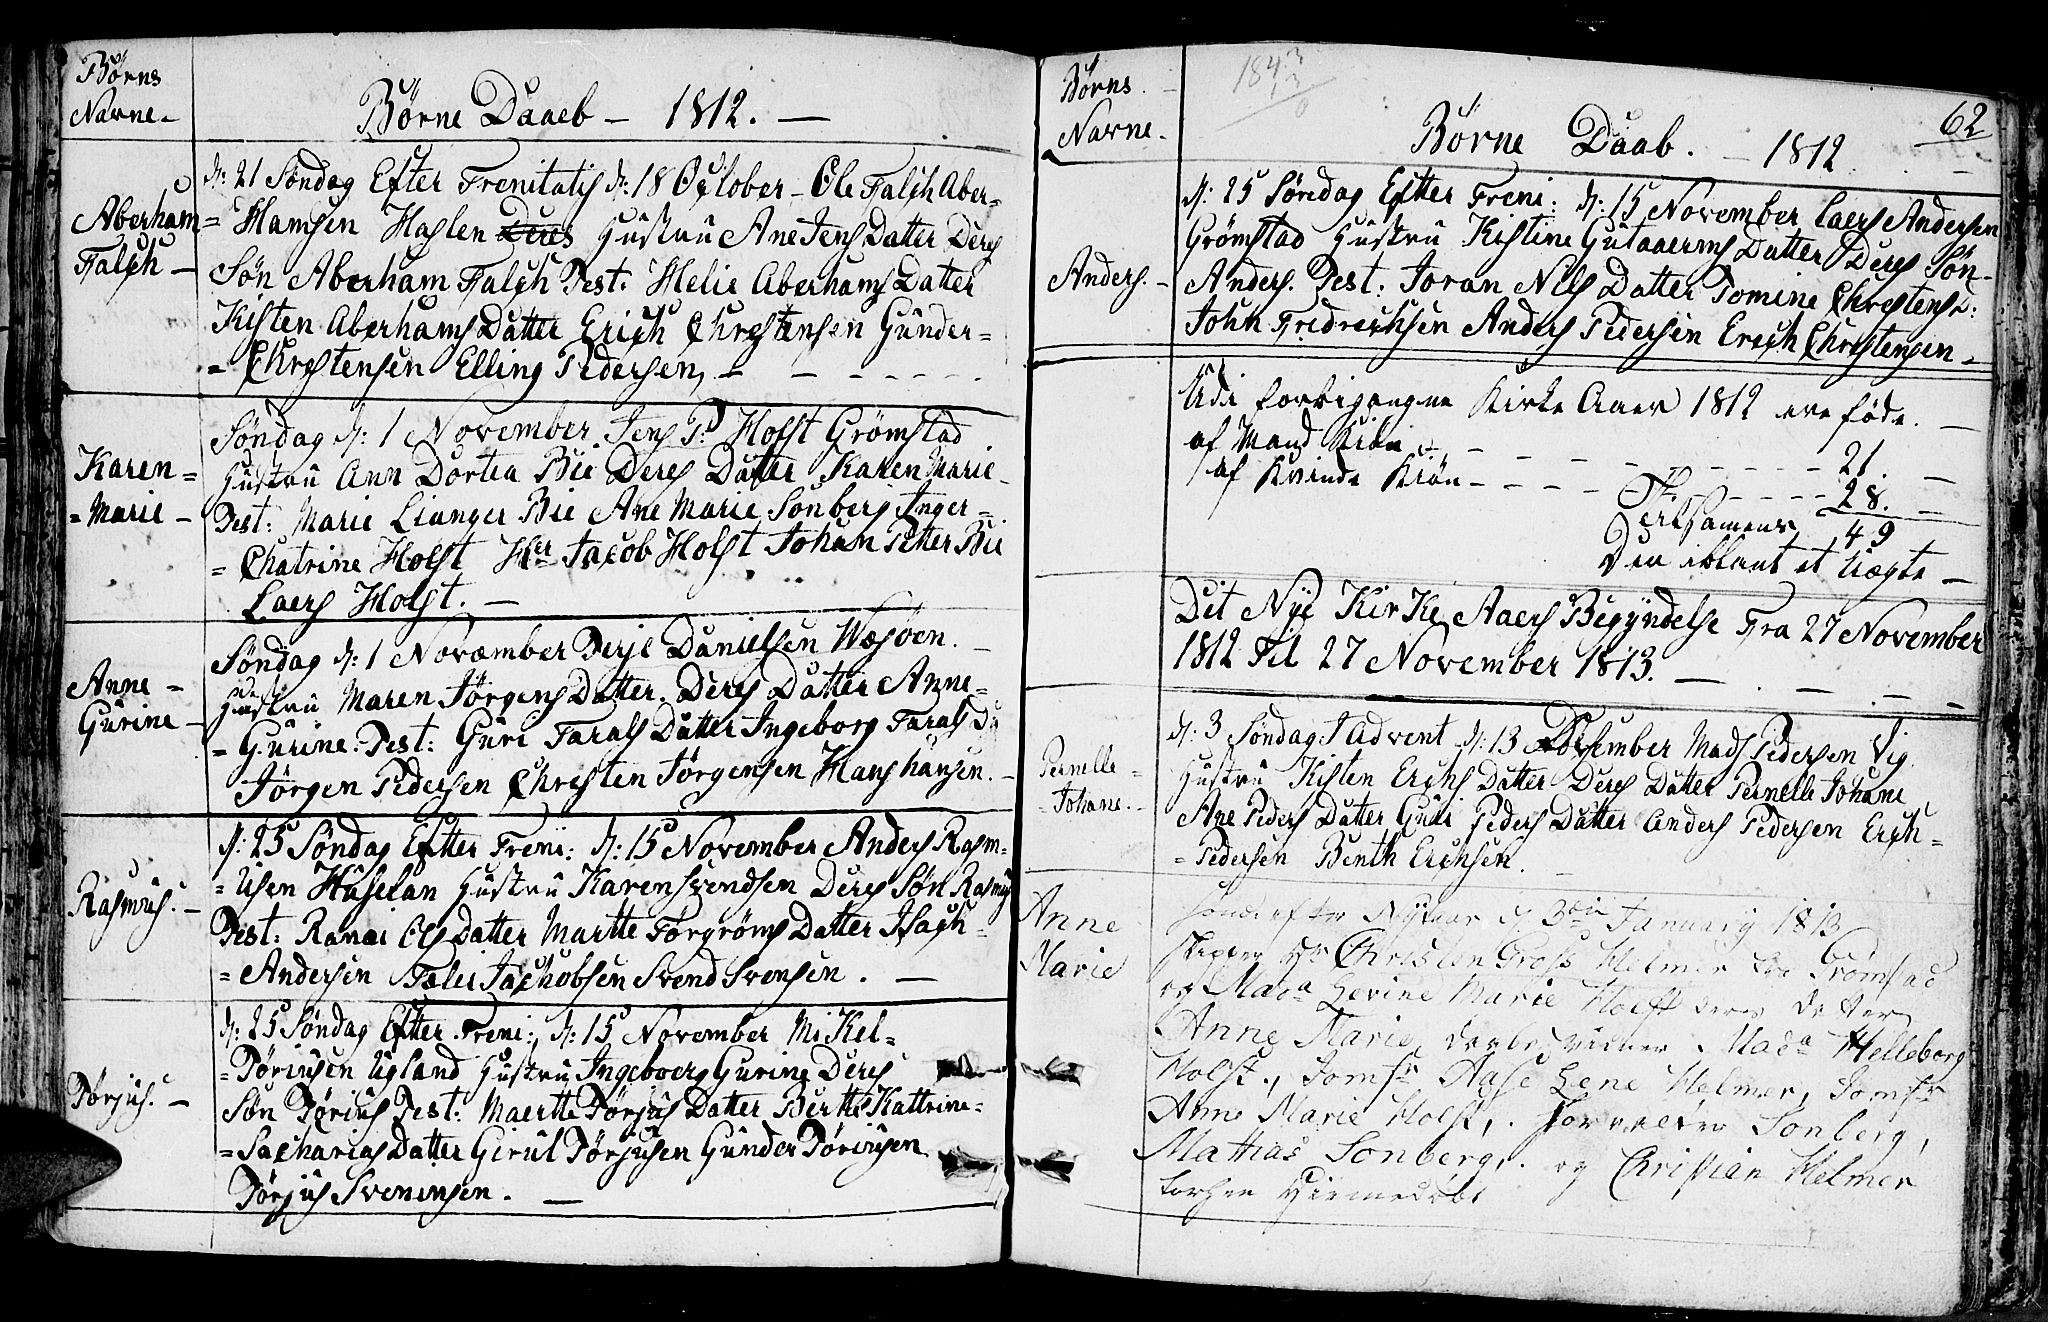 Børns
Navne -
Børne Daaeb - 1812. -
Aberham
Falch -
d: 21 Søndag Efter Trenitatis d: 18 October - Ole Falch Aber-
= Hamsen Haslen Deres Hustru Ane Jens Datter Deres
Søn Aberham Falch Test: Helie Aberhams Datter
Kisten Aberhams Datter Erich Chrestensen Gunder=
= Chrestensen Elling Pedersen, -
Karen=
= Marie -
Søndag d: 1 November Jens P: Holst Grømstad
Hustru Ann Dortea Bie Deres Datter Karen Marie
Test: Marie Lianger Bie Ane Marie Sonberg Inger=
= Chatrine Holst Her Jacob Holst Johan Petter Bie
Laers Holst. -
Anne =
Gurine -
Søndag d: 1 Novæmber Terje Danielsen Wæsøen. -
Hustru Maren Jørgens Datter. Deres Datter Anne=
= Gurine. Test: Guri Tarals Datter Ingeborg Tarals D
Jørgen Pedersen Chresten Jørgensen Hans hansen. -
Rasmus. -
d: 25 Søndag Efter Treni: d: 15 November Anders Rasm=
= usen Haselan Hustru Karen Svendsen Deres Søn Rasmus
Test: Ranai Ols Datter Martte Torgrøms Datter Isach=
= Andersen Talei Jachobsen Svend Svensen. -
Tørjus. -
d: 25 Søndag Efter Treni: d: 15 November Mikel=
= Tøriusen Ugland Hustru Ingeboerg Gurine Deres
Søn Tørius Test: Maertte Tørjus Datter Berthe Kattrine=
= Sacharias Datter Gerul Tørjusen Gunder Tøriusen
Tørjus Sveninsen. -
Børns
Navne -
1843
13
0
62
Børne Daab. - 1812
Anders. -
d: 25 Søndag Efter Treni: d: 15 November Laers Andersen
Grømstad Hustru Kistine Gutaaerms Datter Deres Søn-
Anders. Test: Joran Nils Datter Tomine Chrestens D:
John Fredrechsen Anders Pedersen Erich Chrestensen -
Udi forbigangne Kirke Aaer 1812 ere føde. -
af Mand Kiön - - - - 21. -
af Kvinde Kiön - - - - 28. -
Tilsamens 49
Den iblant et Uægte -
Det Nye Kirke Aaers Begyndelse Fra 27 November
1812 Til 27 November 1813. -
Pernelle =
= Johane. -
d: 3 Søndag I Advent d: 13 December Mads Pedersen Vig
Hustru Kisten Erichs Datter Deres Datter Pernelle Johane
Ane Peders Datter Guri Peders Datter Anders Pedersen Erich=
= Pedersen Benth Erichsen. -
Anne
Marie
Sönd: efter Nytaar d. 3die January 1813
Skipper Hr Christen Gross Helmer fra Trömsad
og Mada Levine Marie Holst deres Datter
Anne Marie, Vidner Mada Helleborg
Holst., Jomfr Aase Lene Helmer, Jomfr
Anne Marie Holst,. Forvalter Sonberg,
Mathias Sonberg,. og Christian Helmer
Hiemedöbt